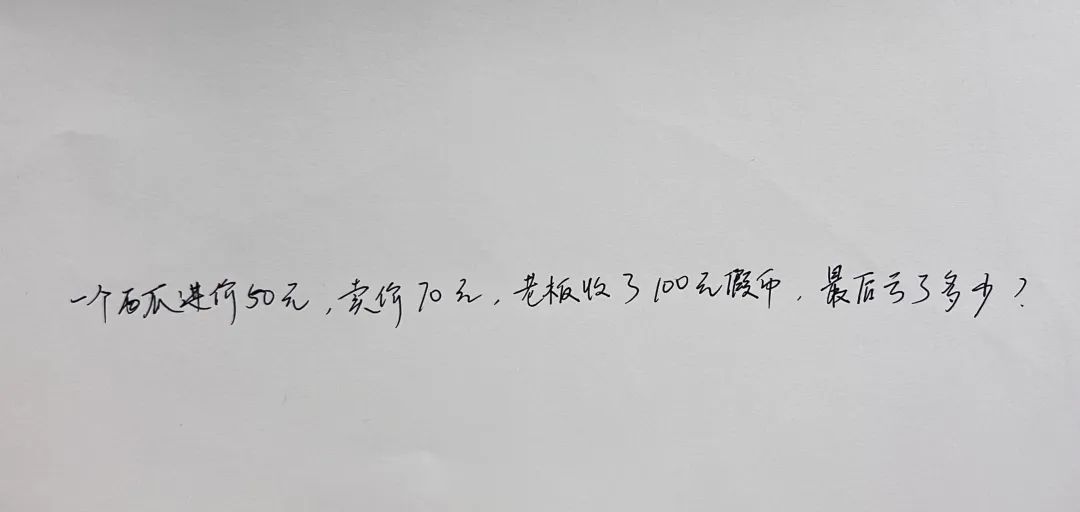 一个西瓜进价50元,卖价70元,老板收了100元假币,最后亏了多少?